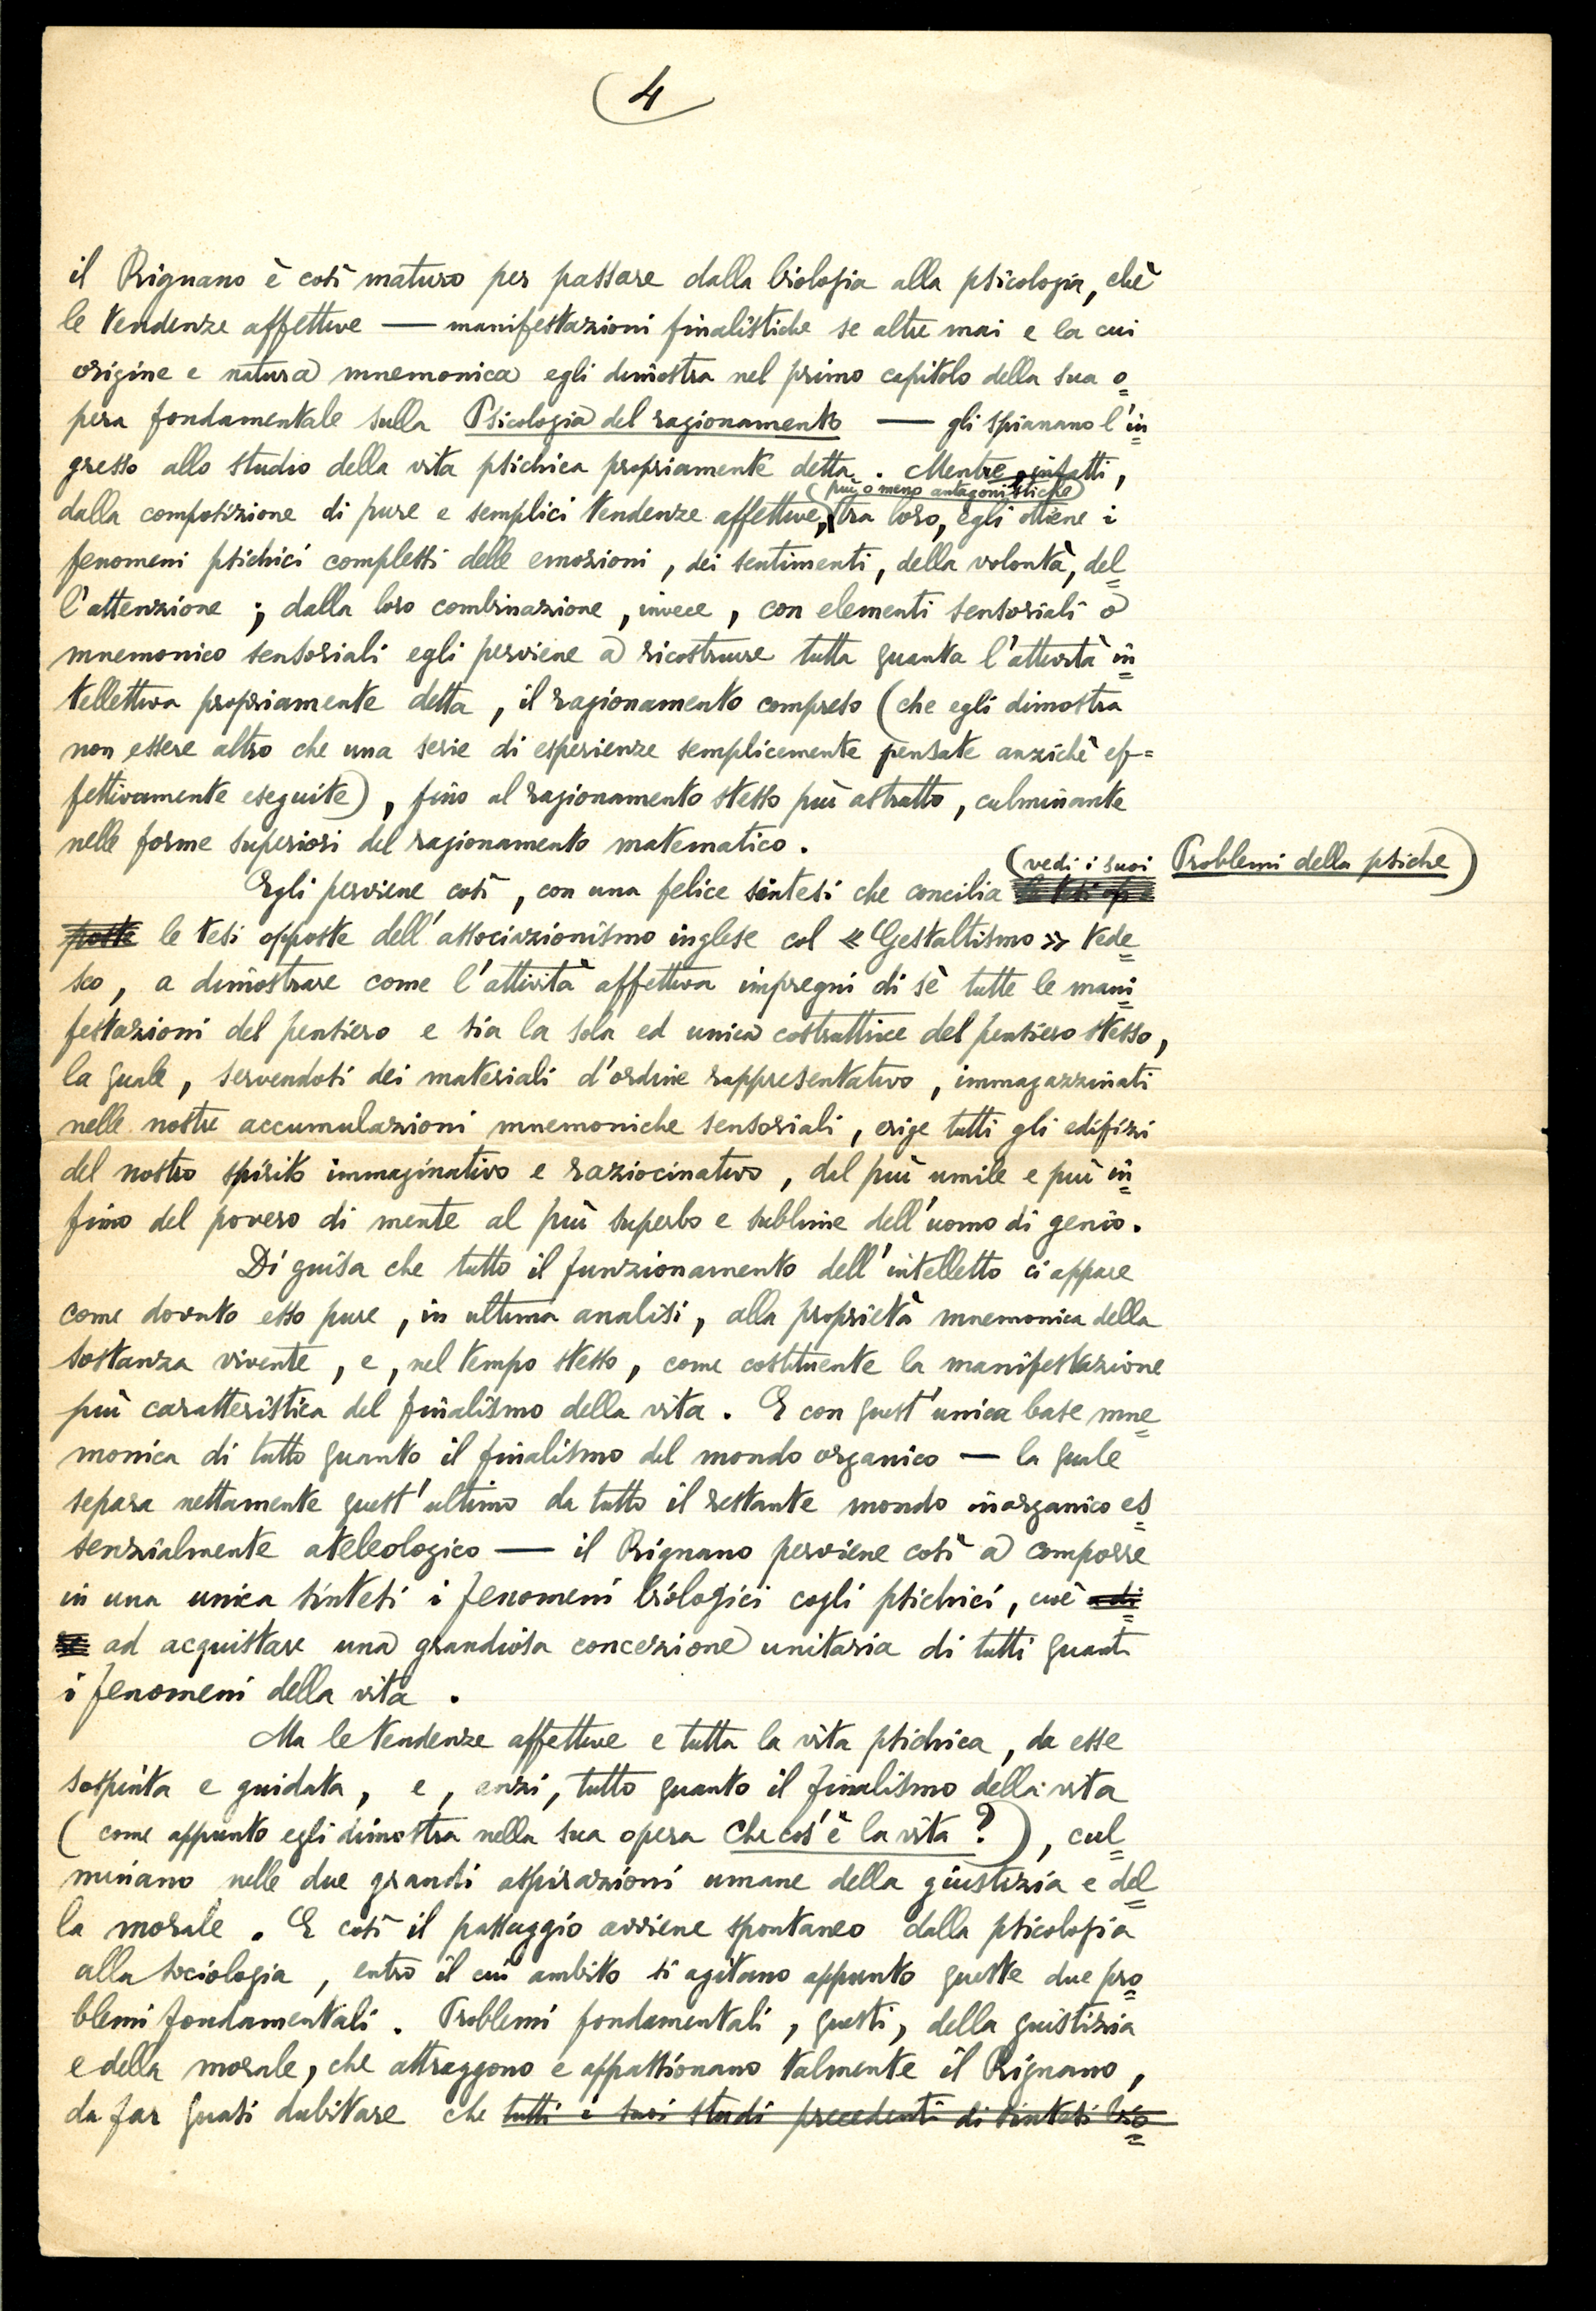 4
il Rignano è così maturo per passare dalla biologia alla psicologia, chè
le tendenze affettive — manifestazioni finalistiche se altre mai e la cui
origine e natura mnemonica egli dimostra nel primo capitolo della sua o=
pera fondamentale sulla Psicologia del ragionamento — gli spianano l'in=
gresso allo studio della vita psichica propriamente detta. Mentre, infatti,
(più o meno antagonistiche)
dalla composizione di pure e semplici tendenze affettive, tra loro, egli ottiene i
fenomeni psichici complessi delle emozioni, dei sentimenti, della volontà, del=
l'attenzione; dalla loro combinazione, invece, con elementi sensoriali o
mnemonico sensoriali egli perviene a ricostruire tutta quanta l'attività in=
tellettiva propriamente detta, il ragionamento compreso (che egli dimostra
non essere altro che una serie di esperienze semplicemente pensate anzichè ef=
fettivamente eseguite), fino al ragionamento stesso più astratto, culminante
nelle forme superiori del ragionamento matematico.
(vedi i suoi Problemi della psiche)
Egli perviene così, con una felice sintesi che concilia le tesi op=
poste le tesi opposte dell'associazionismo inglese col « Gestaltismo » tede=
sco, a dimostrare come l'attività affettiva impregni di sè tutte le mani=
festazioni del pensiero e sia la sola ed unica costruttrice del pensiero stesso,
la quale, servendosi dei materiali d'ordine rappresentativo, immagazzinati
nelle nostre accumulazioni mnemoniche sensoriali, erige tutti gli edifizi
del nostro spirito immaginativo e raziocinativo, dal più umile e più in=
fimo del povero di mente al più superbo e sublime dell'uomo di genio.
Di guisa che tutto il funzionamento dell'intelletto ci appare
come dovuto esso pure, in ultima analisi, alla proprietà mnemonica della
sostanza vivente, e, nel tempo stesso, come costituente la manifestazione
più caratteristica del finalismo della vita. E con quest'unica base mne=
monica di tutto quanto il finalismo del mondo organico — la quale
separa nettamente quest'ultimo da tutto il restante mondo inorganico es=
senzialmente ateleologico — il Rignano perviene così a comporre
in una unica sintesi i fenomeni biologici cogli psichici, cioè
ad acquistare una grandiosa concezione unitaria di tutti quanti
i fenomeni della vita.
Ma le tendenze affettive e tutta la vita psichica, da esse
sospinta e guidata, e, anzi, tutto quanto il finalismo della vita
(come appunto egli dimostra nella sua opera Che cos'è la vita?), cul=
minano nelle due grandi aspirazioni umane della giustizia e del=
la morale. E così il passaggio avviene spontaneo dalla psicologia
alla sociologia, entro il cui ambito si agitano appunto queste due pro=
blemi fondamentali. Problemi fondamentali, questi, della giustizia
e della morale, che attraggono e appassionano talmente il Rignano,
da far quasi dubitare che tutti i suoi studi precedenti di sintesi bio=